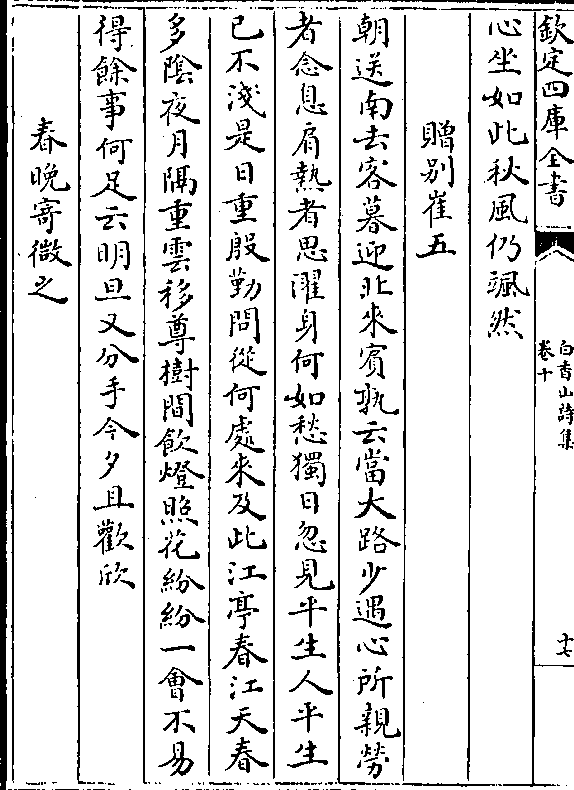 欽定四庫全書
白香山詩集
卷十
十七
心坐如此秋風仍颯然
贈別崔五
朝送南去客暮迎北來賓孰云當大路少遇心所親勞
者念息肩熱者思濯身何如愁獨日忽見平生人平生
已不淺是日重殷勤問從何處來及此江亭春江天春
多陰夜月隔重雲移尊樹間飲燈照花紛紛一會不易
得餘事何足云明旦又分手今夕且歡欣
春晚寄微之